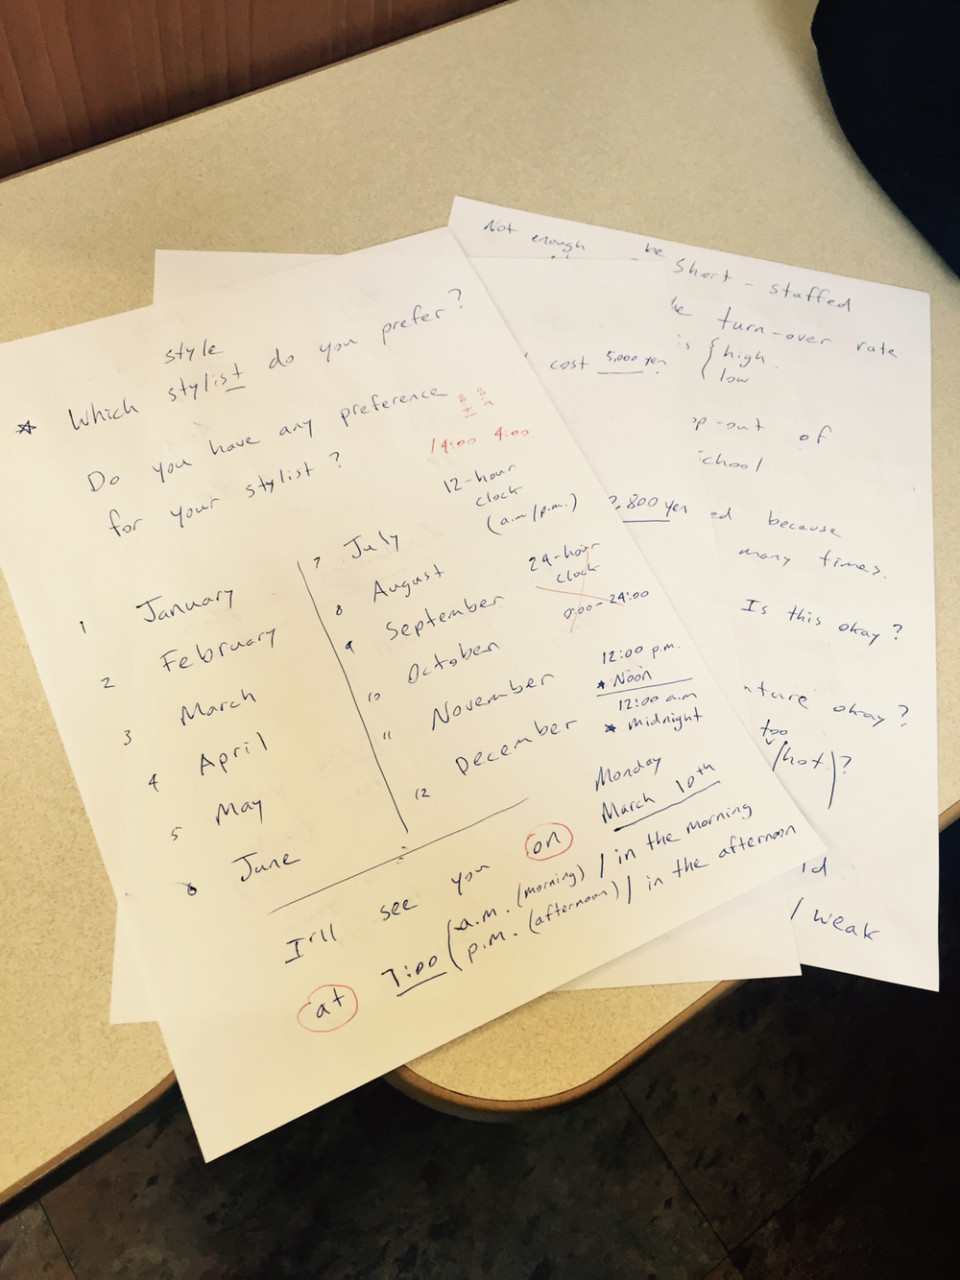 style
* Which stylist do you prefer?
Do you have any preference
for your stylist?
14:00 4:00
12-hour
clock
(a.m/p.m.)
24-hour
clock
0:00-24:00
12:00 p.m.
* Noon
12:00 a.m
* Midnight
1 January
2 February
3 March
4 April
5 May
6 June
7 July
8 August
9 September
10 October
11 November
12 December
Monday
March 10th
I'll see you on
at 7:00 (a.m. (morning) / in the morning
p.m. (afternoon) / in the afternoon
cost 5,000 yen
,800 yen
Not enough be short-staffed
turn-over rate
is { high
low
-out of
chool
ed because
many times.
Is this okay?
ture okay?
too
/hot)?
ld
/ weak